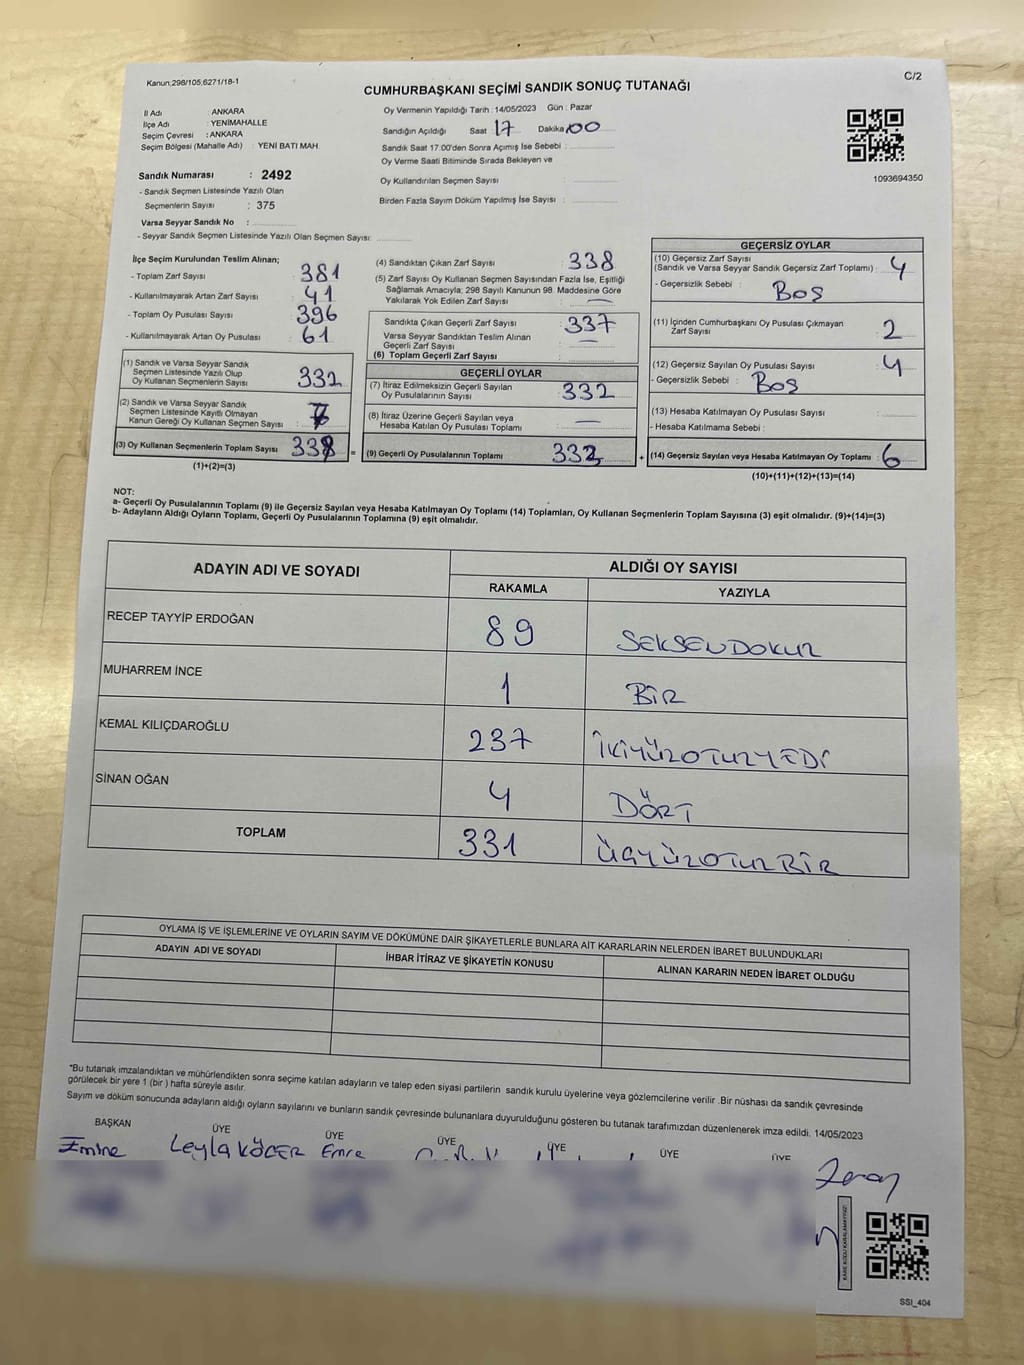 Kanun;298/105,6271/18-1
C/2
CUMHURBAŞKANI SEÇİMİ SANDIK SONUÇ TUTANAĞI
İl Adı : ANKARA
İlçe Adı : YENİMAHALLE
Seçim Çevresi : ANKARA
Seçim Bölgesi (Mahalle Adı) : YENİ BATI MAH.
Sandık Numarası : 2492
- Sandık Seçmen Listesinde Yazılı Olan
Seçmenlerin Sayısı : 375
Varsa Seyyar Sandık No :
- Seyyar Sandık Seçmen Listesinde Yazılı Olan Seçmen Sayısı:
Oy Vermenin Yapıldığı Tarih : 14/05/2023 Gün : Pazar
Sandığın Açıldığı Saat : 17 Dakika : 00
Sandık Saat 17.00'den Sonra Açımış İse Sebebi :
Oy Verme Saati Bitiminde Sırada Bekleyen ve
Oy Kullandırılan Seçmen Sayısı :
Birden Fazla Sayım Döküm Yapılmış İse Sayısı :
1093694350
İlçe Seçim Kurulundan Teslim Alınan;
- Toplam Zarf Sayısı : 381
- Kullanılmayarak Artan Zarf Sayısı : 41
- Toplam Oy Pusulası Sayısı : 396
- Kullanılmayarak Artan Oy Pusulası : 61
(1) Sandık ve Varsa Seyyar Sandık
Seçmen Listesinde Yazılı Olup
Oy Kullanan Seçmenlerin Sayısı : 332
(2) Sandık ve Varsa Seyyar Sandık
Seçmen Listesinde Kayıtlı Olmayan
Kanun Gereği Oy Kullanan Seçmen Sayısı :
(3) Oy Kullanan Seçmenlerin Toplam Sayısı : 338 =
(1)+(2)=(3)
(4) Sandıktan Çıkan Zarf Sayısı : 338
(5) Zarf Sayısı Oy Kullanan Seçmen Sayısından Fazla İse, Eşitliği
Sağlamak Amacıyla; 298 Sayılı Kanunun 98. Maddesine Göre
Yakılarak Yok Edilen Zarf Sayısı : —
Sandıkta Çıkan Geçerli Zarf Sayısı : 337
Varsa Seyyar Sandıktan Teslim Alınan
Geçerli Zarf Sayısı : —
(6) Toplam Geçerli Zarf Sayısı :
GEÇERLİ OYLAR
(7) İtiraz Edilmeksizin Geçerli Sayılan
Oy Pusulalarının Sayısı : 332
(8) İtiraz Üzerine Geçerli Sayılan veya
Hesaba Katılan Oy Pusulası Toplamı : —
(9) Geçerli Oy Pusulalarının Toplamı : 332 +
GEÇERSİZ OYLAR
(10) Geçersiz Zarf Sayısı
(Sandık ve Varsa Seyyar Sandık Geçersiz Zarf Toplamı) : 4
- Geçersizlik Sebebi : BOŞ
(11) İçinden Cumhurbaşkanı Oy Pusulası Çıkmayan
Zarf Sayısı : 2
(12) Geçersiz Sayılan Oy Pusulası Sayısı : 4
- Geçersizlik Sebebi : BOŞ
(13) Hesaba Katılmayan Oy Pusulası Sayısı :
- Hesaba Katılmama Sebebi :
(14) Geçersiz Sayılan veya Hesaba Katılmayan Oy Toplamı : 6
(10)+(11)+(12)+(13)=(14)
NOT:
a- Geçerli Oy Pusulalarının Toplamı (9) ile Geçersiz Sayılan veya Hesaba Katılmayan Oy Toplamı (14) Toplamları, Oy Kullanan Seçmenlerin Toplam Sayısına (3) eşit olmalıdır. (9)+(14)=(3)
b- Adayların Aldığı Oyların Toplamı, Geçerli Oy Pusulalarının Toplamına (9) eşit olmalıdır.
ADAYIN ADI VE SOYADI
ALDIĞI OY SAYISI
RAKAMLA YAZIYLA
RECEP TAYYİP ERDOĞAN 89 SEKSENDOKUZ
MUHARREM İNCE 1 BİR
KEMAL KILIÇDAROĞLU 237 İKİYÜZOTUZYEDİ
SİNAN OĞAN 4 DÖRT
TOPLAM 331 ÜÇYÜZOTUZBİR
OYLAMA İŞ VE İŞLEMLERİNE VE OYLARIN SAYIM VE DÖKÜMÜNE DAİR ŞİKAYETLERLE BUNLARA AİT KARARLARIN NELERDEN İBARET BULUNDUKLARI
ADAYIN ADI VE SOYADI İHBAR İTİRAZ VE ŞİKAYETİN KONUSU ALINAN KARARIN NEDEN İBARET OLDUĞU
*Bu tutanak imzalandıktan ve mühürlendikten sonra seçime katılan adayların ve talep eden siyasi partilerin sandık kurulu üyelerine veya gözlemcilerine verilir .Bir nüshası da sandık çevresinde
görülecek bir yere 1 (bir ) hafta süreyle asılır.
Sayım ve döküm sonucunda adayların aldığı oyların sayılarını ve bunların sandık çevresinde bulunanlara duyurulduğunu gösteren bu tutanak tarafımızdan düzenlenerek imza edildi. 14/05/2023
BAŞKAN ÜYE ÜYE ÜYE ÜYE ÜYE ÜYE
Emine Leyla KÖÇER Emre
KARE KODU KARALAMAYINIZ!
SSI_404